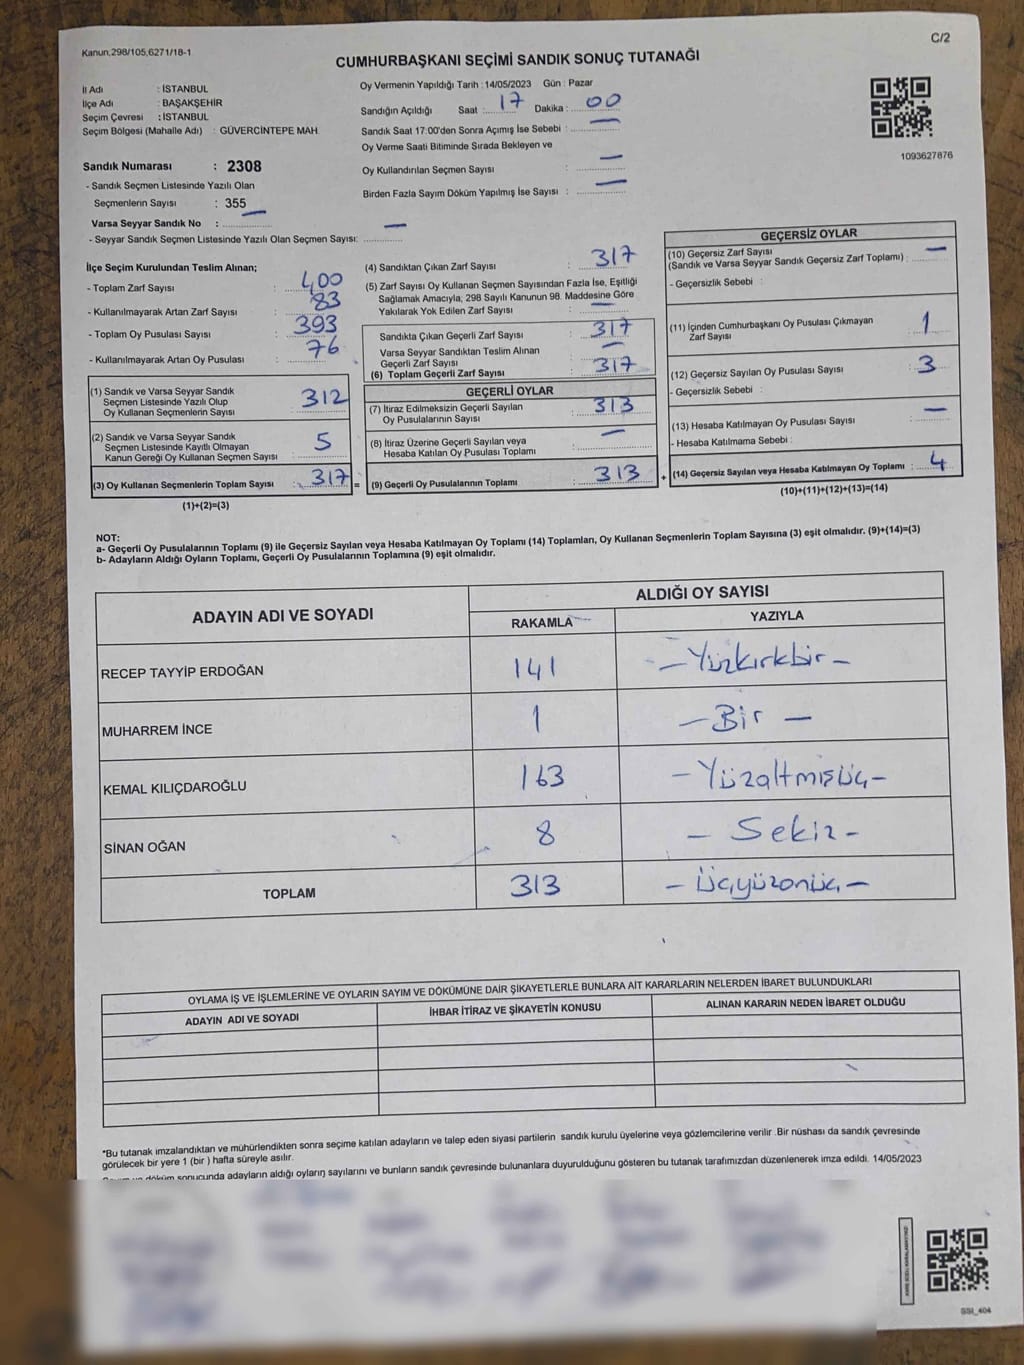 Kanun,298/105,6271/18-1
C/2
CUMHURBAŞKANI SEÇİMİ SANDIK SONUÇ TUTANAĞI
İl Adı : İSTANBUL
İlçe Adı : BAŞAKŞEHİR
Seçim Çevresi : İSTANBUL
Seçim Bölgesi (Mahalle Adı) : GÜVERCİNTEPE MAH.
Sandık Numarası : 2308
- Sandık Seçmen Listesinde Yazılı Olan
Seçmenlerin Sayısı : 355
Varsa Seyyar Sandık No : —
- Seyyar Sandık Seçmen Listesinde Yazılı Olan Seçmen Sayısı: —
Oy Vermenin Yapıldığı Tarih : 14/05/2023 Gün : Pazar
Sandığın Açıldığı Saat : 17 Dakika : 00
Sandık Saat 17:00'den Sonra Açımış İse Sebebi : —
Oy Verme Saati Bitiminde Sırada Bekleyen ve
Oy Kullandırılan Seçmen Sayısı : —
Birden Fazla Sayım Döküm Yapılmış İse Sayısı : —
1093627876
İlçe Seçim Kurulundan Teslim Alınan;
- Toplam Zarf Sayısı : 400
- Kullanılmayarak Artan Zarf Sayısı : 83
- Toplam Oy Pusulası Sayısı : 393
- Kullanılmayarak Artan Oy Pusulası : 76
(1) Sandık ve Varsa Seyyar Sandık
Seçmen Listesinde Yazılı Olup
Oy Kullanan Seçmenlerin Sayısı 312
(2) Sandık ve Varsa Seyyar Sandık
Seçmen Listesinde Kayıtlı Olmayan
Kanun Gereği Oy Kullanan Seçmen Sayısı 5
(3) Oy Kullanan Seçmenlerin Toplam Sayısı : 317 =
(1)+(2)=(3)
(4) Sandıktan Çıkan Zarf Sayısı : 317
(5) Zarf Sayısı Oy Kullanan Seçmen Sayısından Fazla İse, Eşitliği
Sağlamak Amacıyla, 298 Sayılı Kanunun 98. Maddesine Göre
Yakılarak Yok Edilen Zarf Sayısı : —
Sandıkta Çıkan Geçerli Zarf Sayısı : 317
Varsa Seyyar Sandıktan Teslim Alınan
Geçerli Zarf Sayısı : —
(6) Toplam Geçerli Zarf Sayısı : 317
GEÇERLİ OYLAR
(7) İtiraz Edilmeksizin Geçerli Sayılan
Oy Pusulalarının Sayısı : 313
(8) İtiraz Üzerine Geçerli Sayılan veya
Hesaba Katılan Oy Pusulası Toplamı : —
(9) Geçerli Oy Pusulalarının Toplamı : 313 +
GEÇERSİZ OYLAR
(10) Geçersiz Zarf Sayısı
(Sandık ve Varsa Seyyar Sandık Geçersiz Zarf Toplamı) : —
- Geçersizlik Sebebi :
(11) İçinden Cumhurbaşkanı Oy Pusulası Çıkmayan
Zarf Sayısı : 1
(12) Geçersiz Sayılan Oy Pusulası Sayısı : 3
- Geçersizlik Sebebi :
(13) Hesaba Katılmayan Oy Pusulası Sayısı : —
- Hesaba Katılmama Sebebi :
(14) Geçersiz Sayılan veya Hesaba Katılmayan Oy Toplamı : 4
(10)+(11)+(12)+(13)=(14)
NOT:
a- Geçerli Oy Pusulalarının Toplamı (9) ile Geçersiz Sayılan veya Hesaba Katılmayan Oy Toplamı (14) Toplamları, Oy Kullanan Seçmenlerin Toplam Sayısına (3) eşit olmalıdır. (9)+(14)=(3)
b- Adayların Aldığı Oyların Toplamı, Geçerli Oy Pusulalarının Toplamına (9) eşit olmalıdır.
ADAYIN ADI VE SOYADI
ALDIĞI OY SAYISI
RAKAMLA YAZIYLA
RECEP TAYYİP ERDOĞAN 141 — Yüzkırkbir —
MUHARREM İNCE 1 — Bir —
KEMAL KILIÇDAROĞLU 163 — Yüzaltmışüç —
SİNAN OĞAN 8 — Sekiz —
TOPLAM 313 — Üçyüzonüç —
OYLAMA İŞ VE İŞLEMLERİNE VE OYLARIN SAYIM VE DÖKÜMÜNE DAİR ŞİKAYETLERLE BUNLARA AİT KARARLARIN NELERDEN İBARET BULUNDUKLARI
ADAYIN ADI VE SOYADI İHBAR İTİRAZ VE ŞİKAYETİN KONUSU ALINAN KARARIN NEDEN İBARET OLDUĞU
*Bu tutanak imzalandıktan ve mühürlendikten sonra seçime katılan adayların ve talep eden siyasi partilerin sandık kurulu üyelerine veya gözlemcilerine verilir .Bir nüshası da sandık çevresinde
görülecek bir yere 1 (bir ) hafta süreyle asılır.
döküm sonucunda adayların aldığı oyların sayılarını ve bunların sandık çevresinde bulunanlara duyurulduğunu gösteren bu tutanak tarafımızdan düzenlenerek imza edildi. 14/05/2023
SSI_404